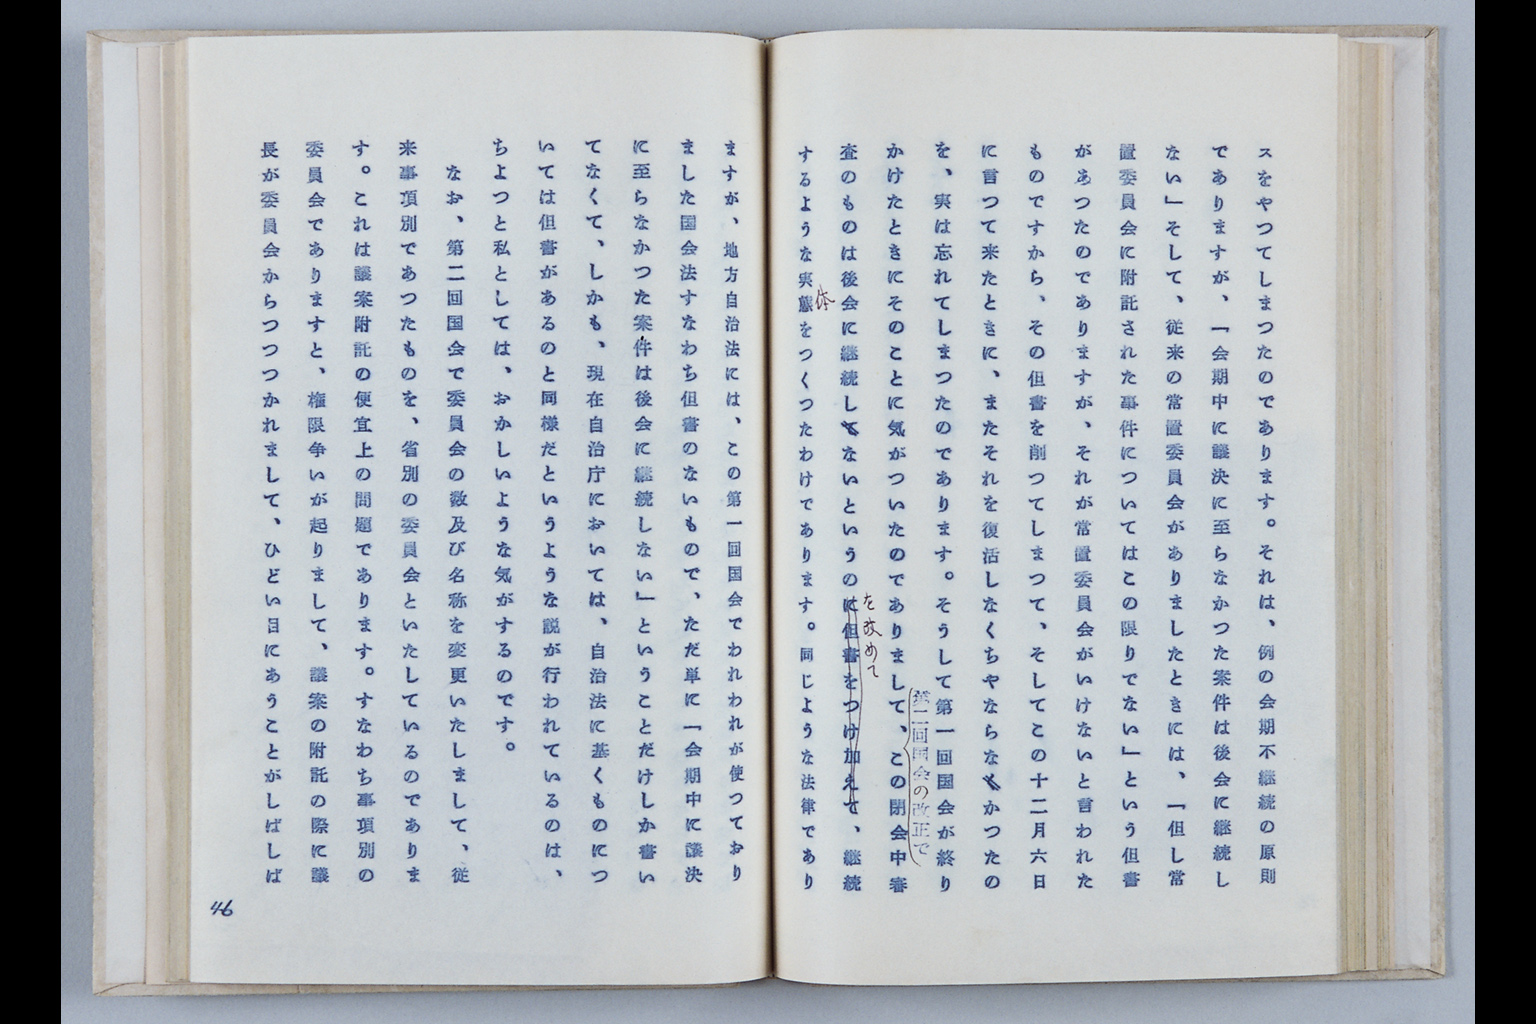 スをやつてしまつたのであります。それは、例の会期不継続の原則
でありますが、「会期中に議決に至らなかつた案件は後会に継続し
ない」そして、従来の常置委員会がありましたときには、「但し常
置委員会に附託された事件についてはこの限りでない」という但書
があつたのでありますが、それが常置委員会がいけないと言われた
ものですから、その但書を削つてしまつて、そしてこの十二月六日
に言つて来たときに、またそれを復活しなくちやならなくかつたの
を、実は忘れてしまつたのであります。そうして第一回国会が終り
第二回国会の改正で
かけたときにそのことに気がついたのでありまして、この閉会中審
を改めて
査のものは後会に継続してないというのに但書をつけ加えて、継続
体
するような実態をつくつたわけであります。同じような法律であり
ますが、地方自治法には、この第一回国会でわれわれが使つており
ました国会法すなわち但書のないもので、ただ単に「会期中に議決
に至らなかつた案件は後会に継続しない」ということだけしか書い
てなくて、しかも、現在自治庁においては、自治法に基くものにつ
いては但書があるのと同様だというような説が行われているのは、
ちよつと私としては、おかしいような気がするのです。
なお、第二回国会で委員会の数及び名称を変更いたしまして、従
来事項別であつたものを、省別の委員会といたしているのでありま
す。これは議案附託の便宜上の問題であります。すなわち事項別の
委員会でありますと、権限争いが起りまして、議案の附託の際に議
長が委員会からつつつかれまして、ひどい目にあうことがしばしば
46